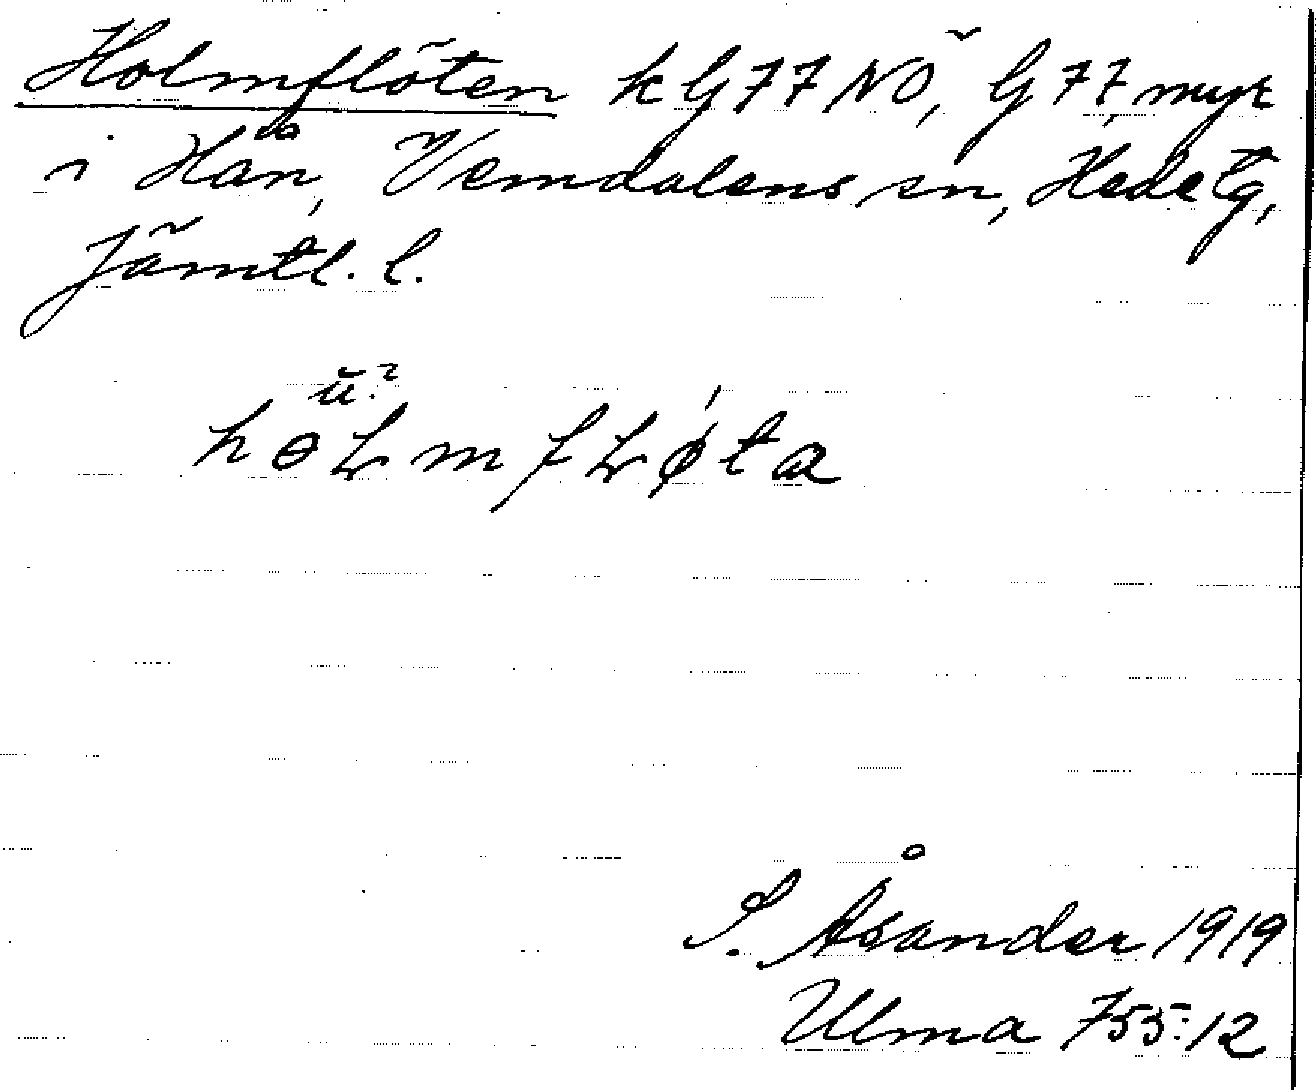 Holmflöten k G 77 NÖ, G 77, myr
i Hån, Vemdalens sn, Hede tg,
Jämtl. l.
ŭ.?
hɵLmfLø´ta
S. Åsander 1919
Ulma 755:12